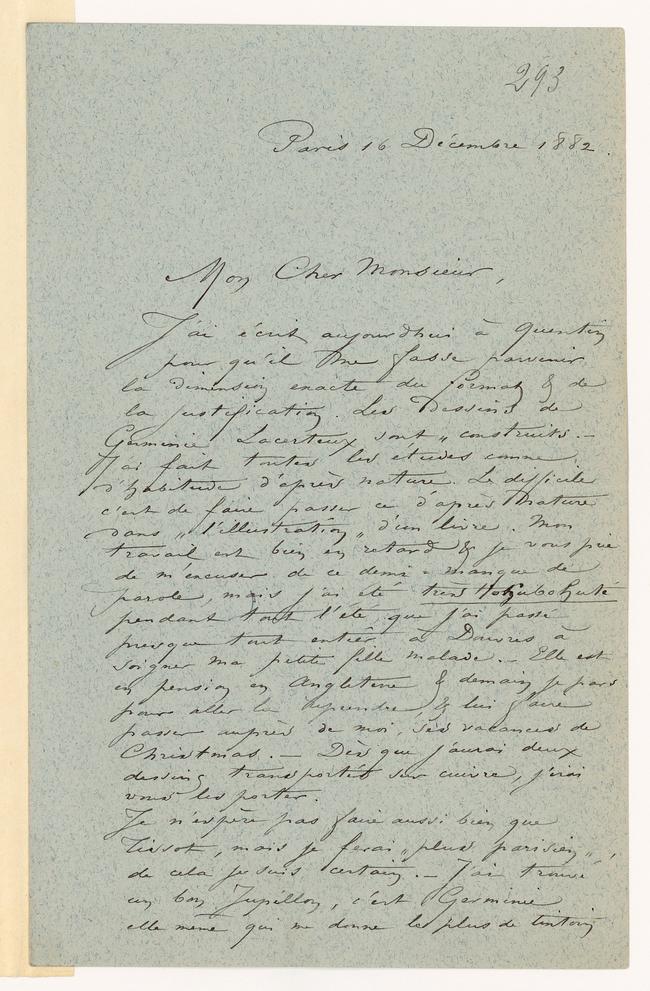 293
Paris 16 Décembre 1882.
Mon Cher Monsieur,
J'ai écrit aujourdhui à Quentin
pour qu'il me fasse parvenir
la dimension exacte du format & de
la justification. Les Dessins de
Germinie Lacerteux sont „ construits. –
J'ai fait toutes les etudes comme
d'habitude d'après nature. Le difficile
c'est de faire passer ce d'après nature
dans „ l'illustration „ d'un livre. Mon
travail est bien en retard & je vous prie
de m'excuser de ce demi-manque de
parole, mais j'ai été très
pendant tout l'été que j'ai passé
presque tout entier à Douvres à
soigner ma petite fille malade. – Elle est
en pension en Angleterre & demain je pars
pour aller la reprendre & lui faire
passer auprès de moi, ses vacances de
Christmas. – Dès que j'aurai deux
dessins transportés sur cuivre, j'irai
vous les porter.
Je n'espère pas faire aussi bien que
Tissot, mais je ferai „ plus parisien „,
de cela je suis certain. – J'ai trouvé
un bon Jupillon, c'est Germinie
elle même qui me donne le plus de tintoin